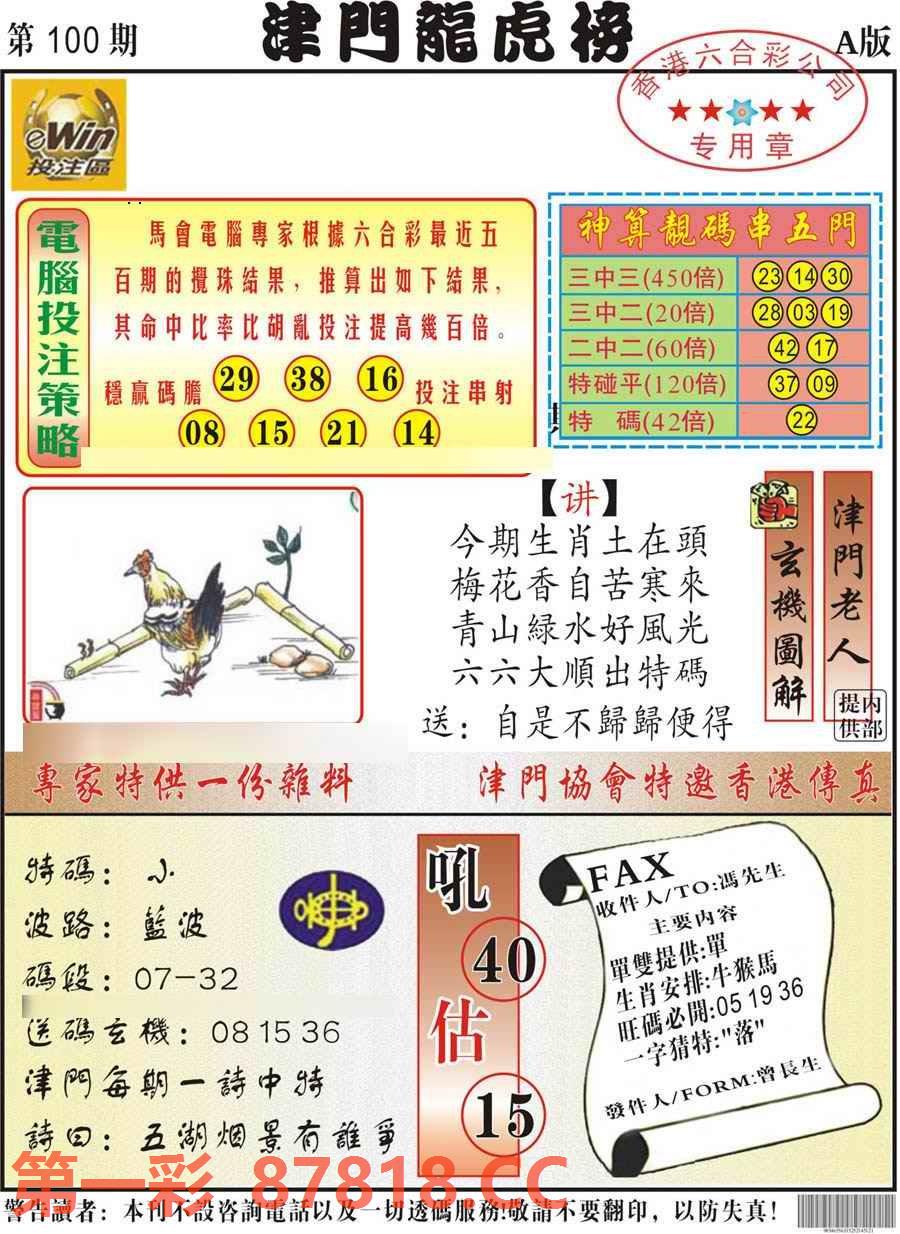 第 100 期
津門龍虎榜
A版
香港六合彩公司
专用章
eWin
投注區
電腦投注策略
馬會電腦專家根據六合彩最近五
百期的攪珠結果，推算出如下結果，
其命中比率比胡亂投注提高幾百倍。
穩贏碼膽 29 38 16 投注串射
08 15 21 14
神算靚碼串五門
三中三(450倍) 23 14 30
三中二(20倍) 28 03 19
二中二(60倍) 42 17
特碰平(120倍) 37 09
特 碼(42倍) 22
33
【讲】
今期生肖土在頭
梅花香自苦寒來
青山緑水好風光
六六大順出特碼
送：自是不歸歸便得
玄機圖解
津門老人
内部提供
專家特供一份雜料
津門協會特邀香港傳真
特碼：小
波路：藍波
碼段：07-32
送碼玄機：08 15 36
津門每期一詩中特
詩曰：五湖烟景有誰爭
吼
40
估
15
FAX
收件人/TO:馮先生
主要内容
單雙提供:單
生肖安排:牛猴馬
旺碼必開:05 19 36
一字猜特:"落"
發件人/FORM:曾長生
第一彩 87818.CC
警告讀者：本刊不設咨詢電話以及一切透碼服務!敬請不要翻印，以防失真!